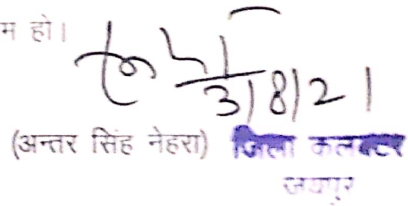 म हो।
31/8/21
(अन्तर सिंह नेहरा) जिला कलक्टर
जयपुर